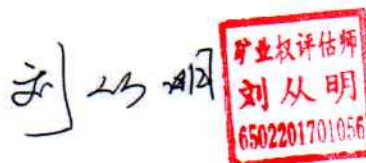 刘从明
矿业权评估师
刘从明
6502201701056